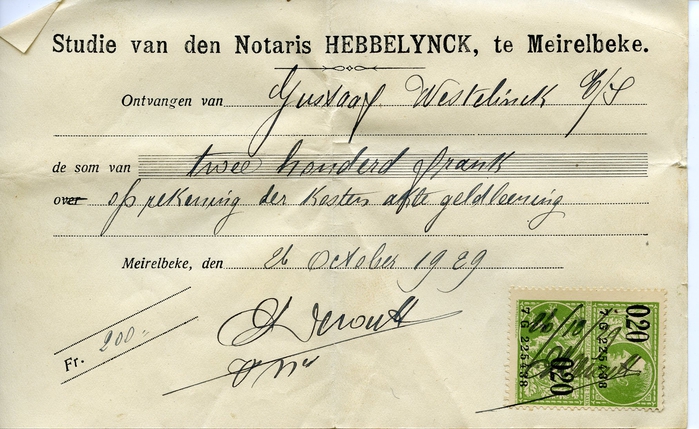 Studie van den Notaris HEBBELYNCK, te Meirelbeke.
Ontvangen van Gustaaf Westelinck
de som van twee honderd frank
over op rekening der kosten akte geldleening
Meirelbeke, den 26 October 1929
Fr. 200
020
7.G 225498
26/10
020
7.G 225498